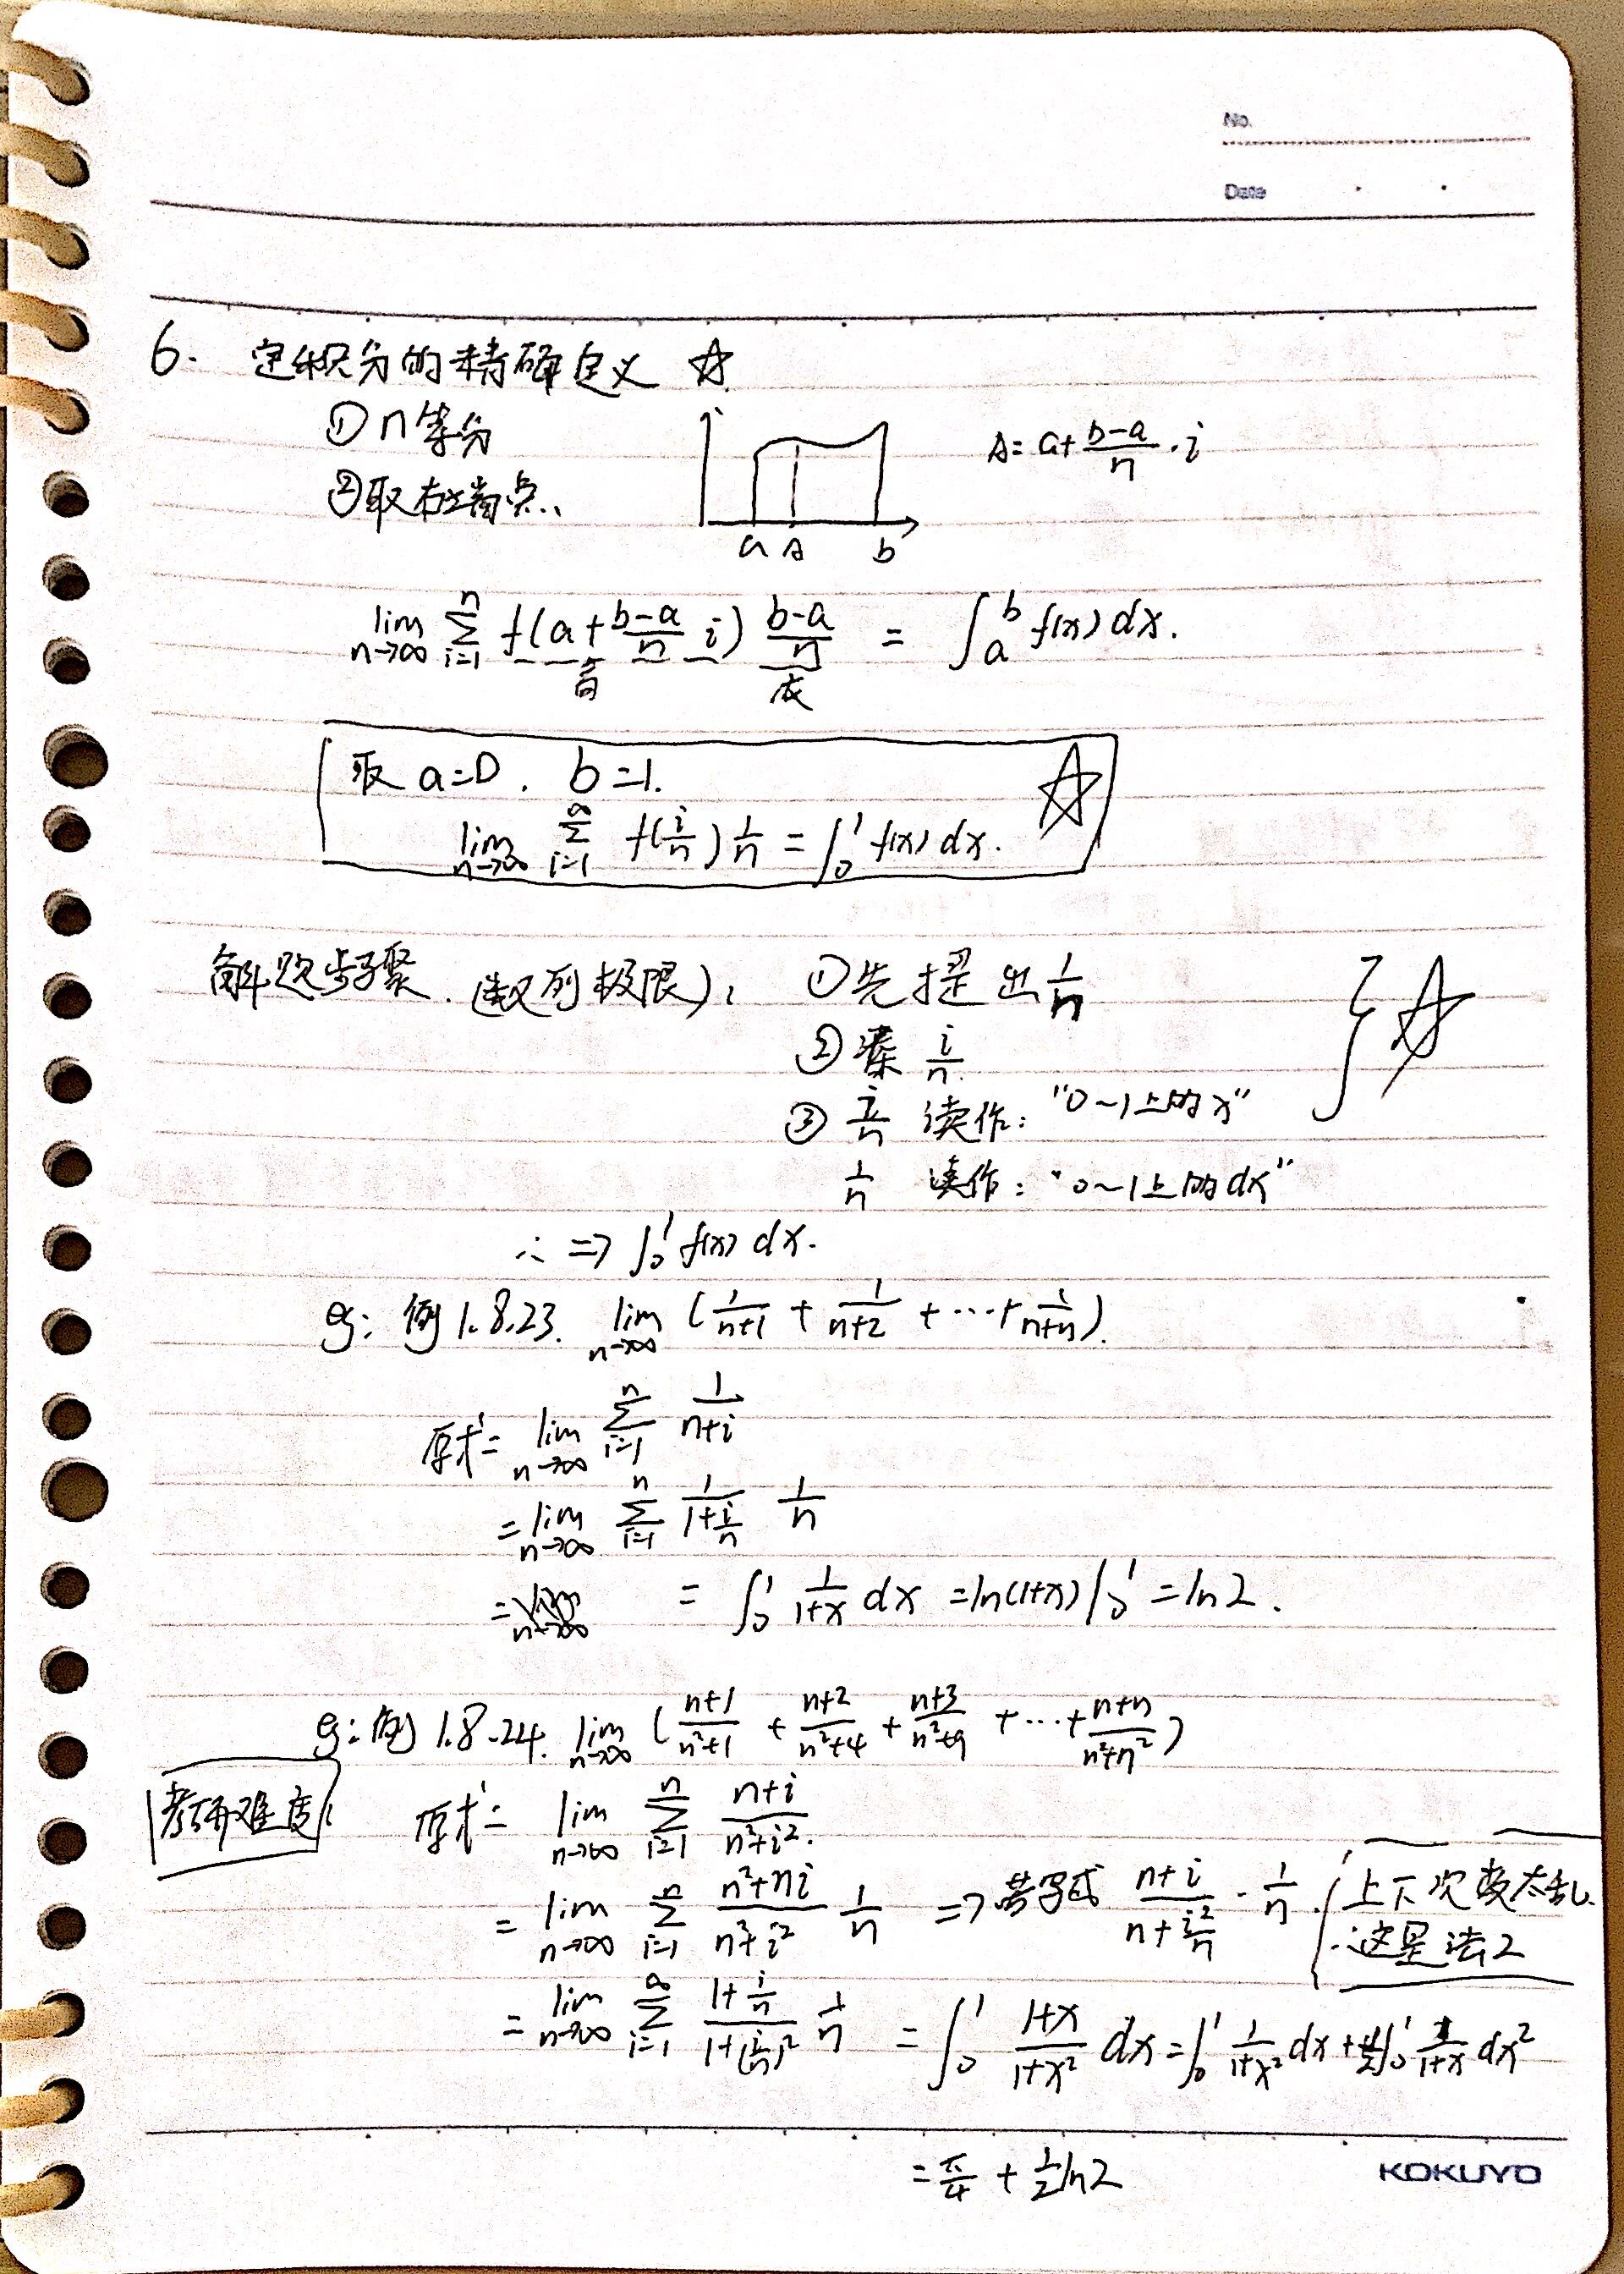 No.
Date
6. 定积分的精确定义 ☆
① n等分
② 取右端点.
A = a + \frac{b-a}{n} · i
a A b
\lim_{n→∞} \sum_{i=1}^{n} f(a + \frac{b-a}{n} i) \frac{b-a}{n} = \int_a^b f(x) dx.
高 底
取 a=0. b=1. ☆
\lim_{n→∞} \sum_{i=1}^{∞} f(\frac{i}{n}) \frac{1}{n} = \int_0^1 f(x) dx.
解题步骤. (数列极限): ① 先提出 \frac{1}{n}
② 凑 \frac{i}{n}.
③ \frac{i}{n} 读作: "0~1上的x"
\frac{1}{n} 读作: "0~1上的dx"
☆
∴ ⇒ \int_0^1 f(x) dx.
eg: 例1.8.23. \lim_{n→∞} (\frac{1}{n+1} + \frac{1}{n+2} + ··· + \frac{1}{n+n}).
原式 = \lim_{n→∞} \sum_{i=1}^{n} \frac{1}{n+i}
= \lim_{n→∞} \sum_{i=1}^{n} \frac{1}{1+\frac{i}{n}} \frac{1}{n}
= \int_0^1 \frac{1}{1+x} dx = ln(1+x)|_0^1 = ln2.
eg: 例1.8.24. \lim_{n→∞} (\frac{n+1}{n²+1} + \frac{n+2}{n²+4} + \frac{n+3}{n²+9} + ··· + \frac{n+n}{n²+n²})
考研难度! 原式 = \lim_{n→∞} \sum_{i=1}^{n} \frac{n+i}{n²+i²}.
= \lim_{n→∞} \sum_{i=1}^{n} \frac{n²+ni}{n²+i²} \frac{1}{n} ⇒ 若写成 \frac{n+i}{n+\frac{i²}{n}} · \frac{1}{n}. 上下次数太乱.
∴这是法2
= \lim_{n→∞} \sum_{i=1}^{∞} \frac{1+\frac{i}{n}}{1+(\frac{i}{n})²} \frac{1}{n} = \int_0^1 \frac{1+x}{1+x²} dx = \int_0^1 \frac{1}{1+x²} dx + \frac{1}{2}\int_0^1 \frac{1}{1+x} dx²
= \frac{π}{4} + \frac{1}{2}ln2
KOKUYO